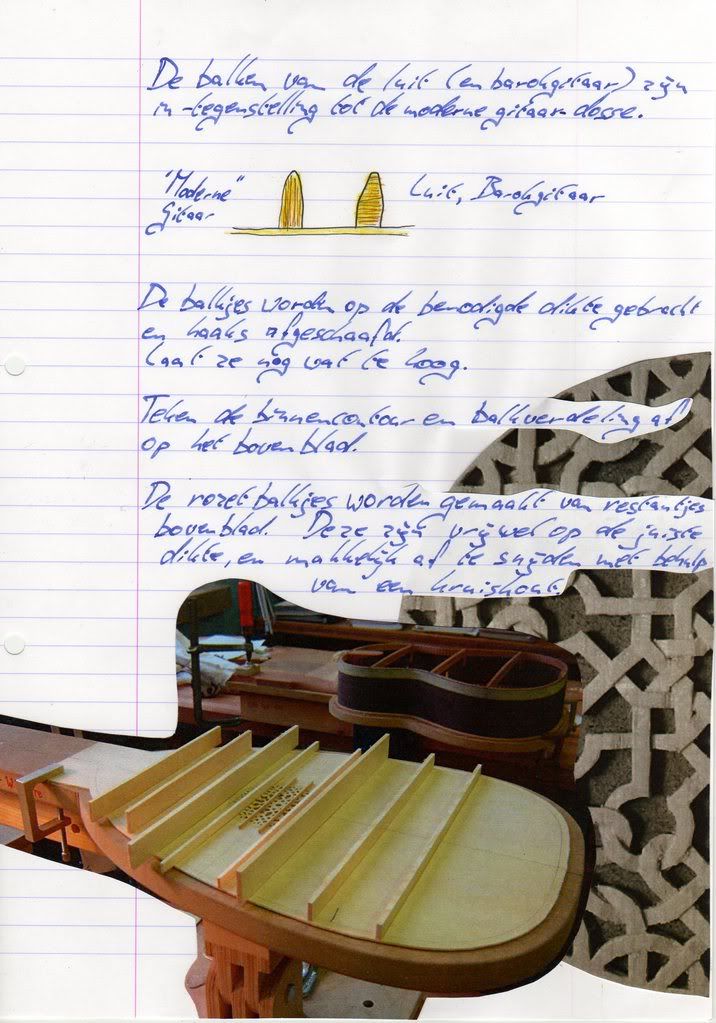 De balken van de luit (en barokgitaar) zijn
in-tegenstelling tot de moderne gitaar dosse.
"Moderne"
Gitaar
Luit, Barokgitaar
De balkjes worden op de benodigde dikte gebracht
en haaks afgeschaafd.
Laat ze nog wat te hoog.
Teken de binnencontour en balkverdeling af
op het bovenblad.
De rozetbalkjes worden gemaakt van restantjes
bovenblad. Deze zijn vrijwel op de juiste
dikte, en makkelijk af te snijden met behulp
van een kruishout.